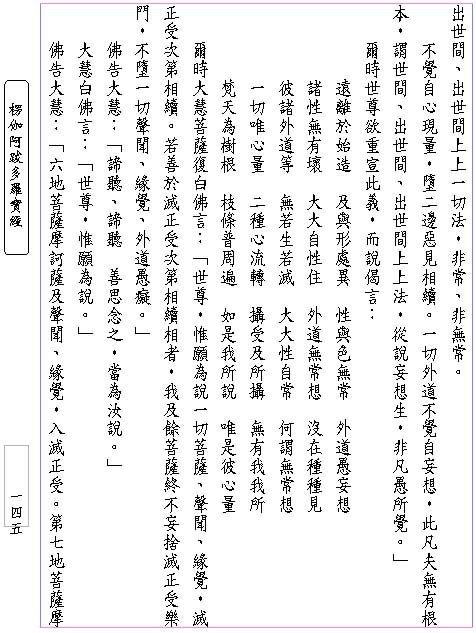 出世間、出世間上上一切法，非常、非無常。
不覺自心現量，墮二邊惡見相續。一切外道不覺自妄想，此凡夫無有根
本，謂世間、出世間、出世間上上法，從說妄想生，非凡愚所覺。」
爾時世尊欲重宣此義，而說偈言：
遠離於始造　及與形處異　性與色無常　外道愚妄想
諸性無有壞　大大自性住　外道無常想　沒在種種見
彼諸外道等　無若生若滅　大大性自常　何謂無常想
一切唯心量　二種心流轉　攝受及所攝　無有我我所
梵天為樹根　枝條普周遍　如是我所說　唯是彼心量
爾時大慧菩薩復白佛言：「世尊，惟願為說一切菩薩、聲聞、緣覺，滅
正受次第相續。若善於滅正受次第相續相者，我及餘菩薩終不妄捨滅正受樂
門，不墮一切聲聞、緣覺、外道愚癡。」
佛告大慧：「諦聽、諦聽　善思念之，當為汝說。」
大慧白佛言：「世尊，惟願為說。」
佛告大慧：「六地菩薩摩訶薩及聲聞、緣覺，入滅正受。第七地菩薩摩
楞伽阿跋多羅寶經
一四五